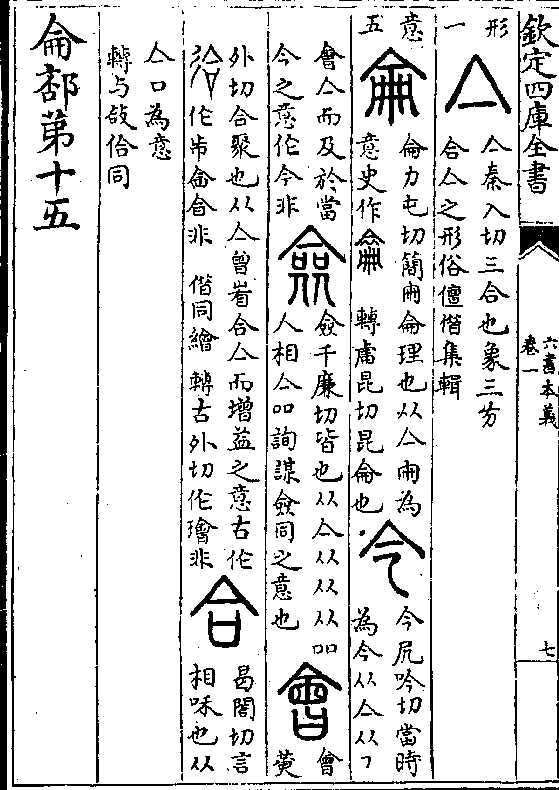 欽定四庫全書
六書本義
卷一
七
形
一
亼
亼秦入切三合也象三方
合亼之形俗儃偕集輯
意
五
侖
侖力屯切簡冊侖理也从亼冊為
意史作 轉盧昆切昆侖也
今
今凥吟切當時
為今从亼从㇇
會亼而及於當
今之意作今非
僉
僉千廉切皆也从亼从从从吅
人相亼吅詢謀僉同之意也
會
會黃
外切合聚也从亼曾省合亼而增益之意古作
作 非 偕同繪 轉古外切作璯非
合
曷閤切言
相咊也从
亼口為意
轉与敆佮同
侖部第十五